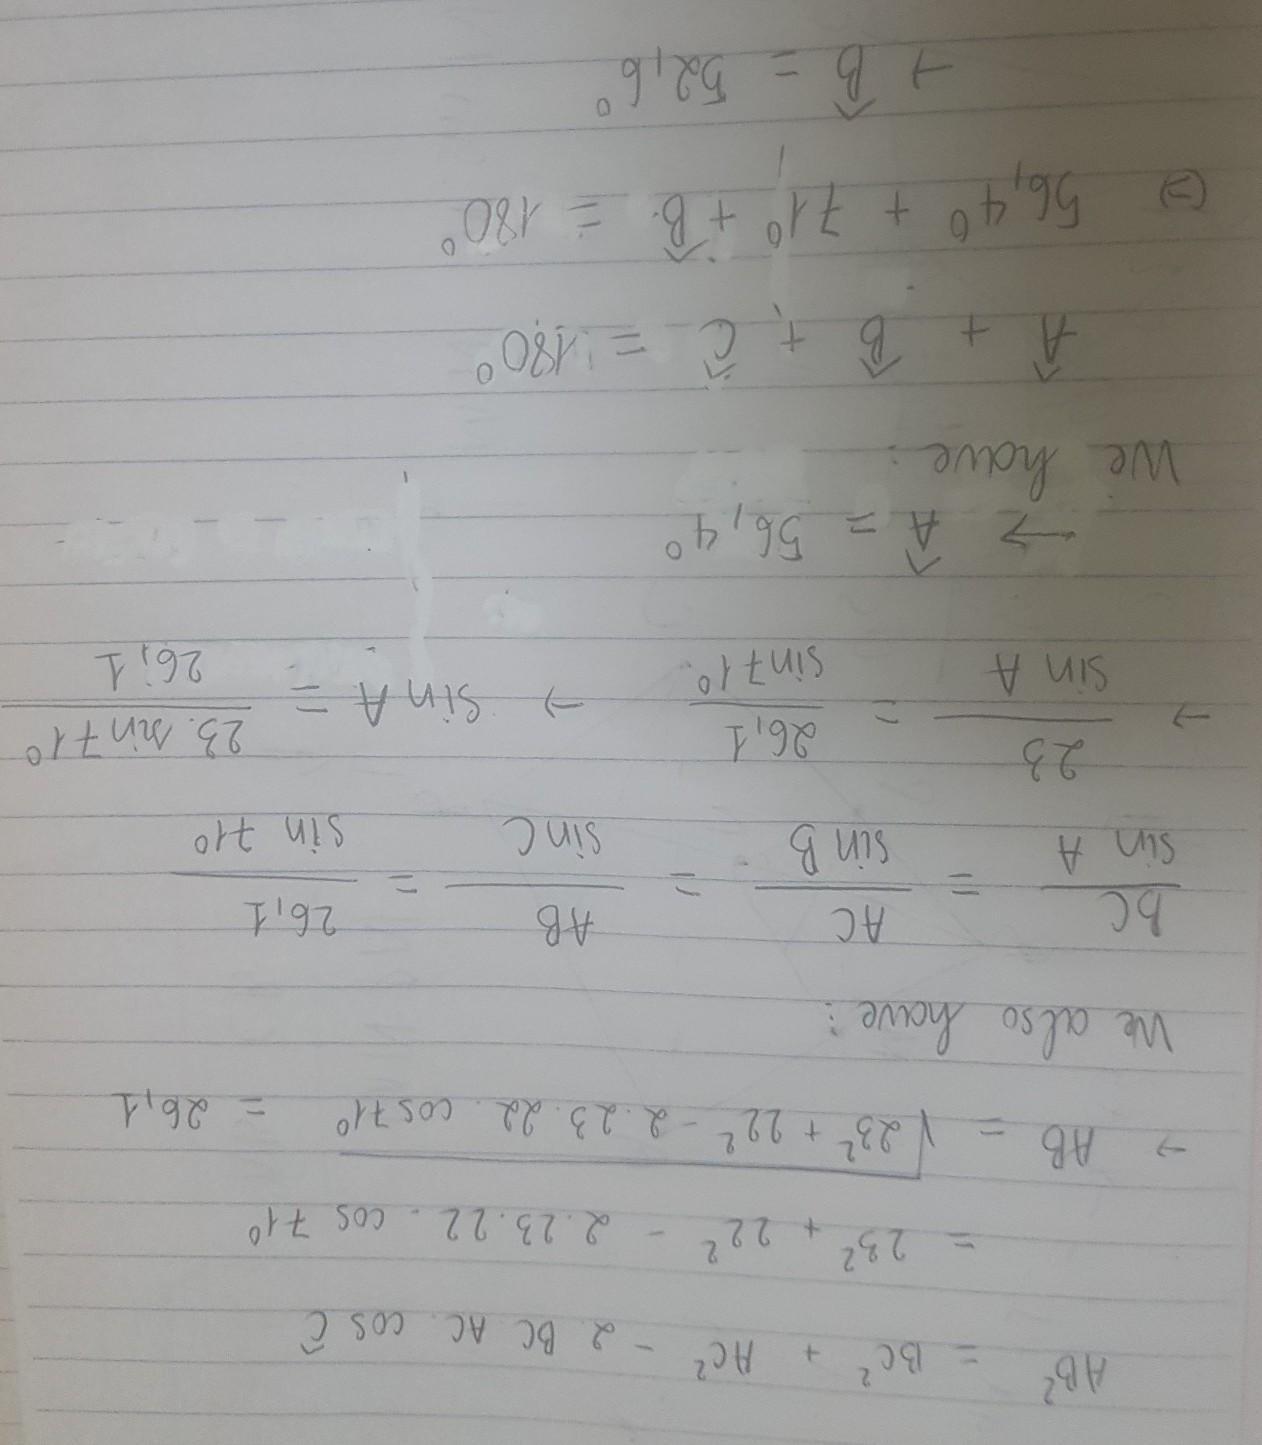 AB² = BC² + AC² - 2. BC. AC. cos Ĉ
= 23² + 22² - 2.23.22. cos 71°
→ AB = √23² + 22² - 2.23.22. cos71° = 26,1
We also have :
BC/sin A = AC/sin B = AB/sin C = 26,1/sin 71°
→ 23/sin A = 26,1/sin 71° → sin A = 23. sin 71°/26,1
→ Â = 56,4°
We have :
Â + B̂ + Ĉ = 180°
(=) 56,4° + 71° + B̂ = 180°
→ B̂ = 52,6°